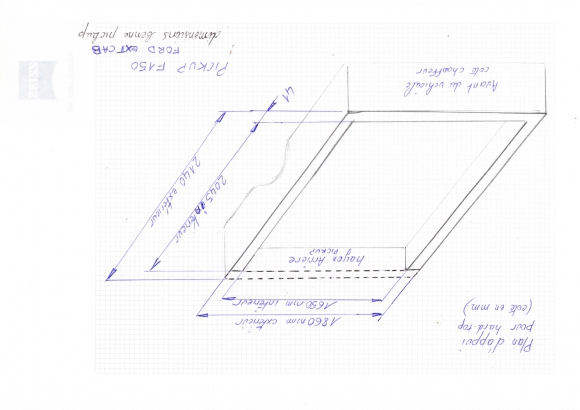 Plan d'appui
pour hard-top
(cote en mm)
1860mm extérieur
mm intérieur
hayon Arrière
PICKUP
2045 intérieur
2140 extérieur
41
Avant du véhicule
coté chauffeur
PICKUP F150
FORD EXT CAB
dimensions benne pickup